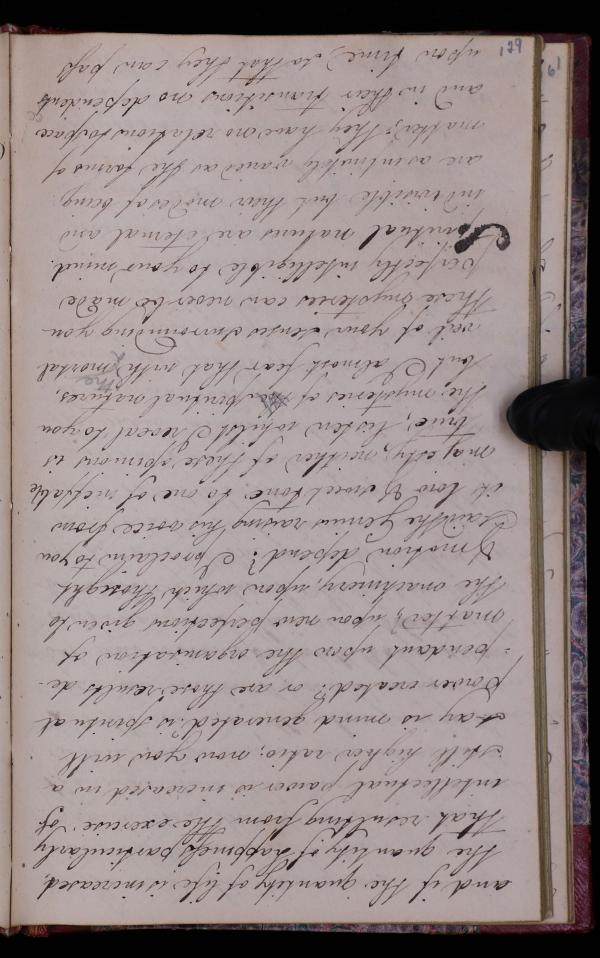 129
61
and if the quantity of life is increased,
the quantity of happiness, particularly
that resulting from the exercise of
intellectual power is increased in a
still higher ratio; now you will
say is mind generated? is spiritual
power created? or are those results de-
-pendant upon the organisation of
matter; upon new perfections given to
the machinery, upon which thought
& motion depend? I proclaim to you
Said the genius raising his voice from
it low & sweet tone to one of ineffable
majesty, neither of these opinions is
true; listen whilst I reveal to you
the mysteries of spiritual natures,
but I almost fear that with the mortal
veil of your senses surrounding you
these mysteries can never be made
perfectly intelligible to your mind.
Spiritual natures are eternal and
indivisible but their modes of being
are as infinitely varied as the forms of
matter; they have no relations to space
and in their transitions no dependence
upon time, so that they can pass